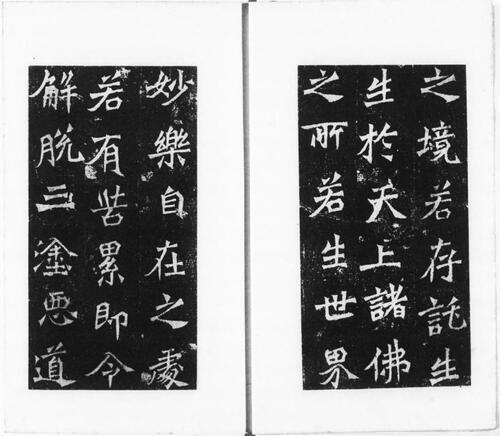 之境若存託生
生於天上諸佛
之所若生世界
妙樂自在之處
若有苦累即令
解脫三塗惡道